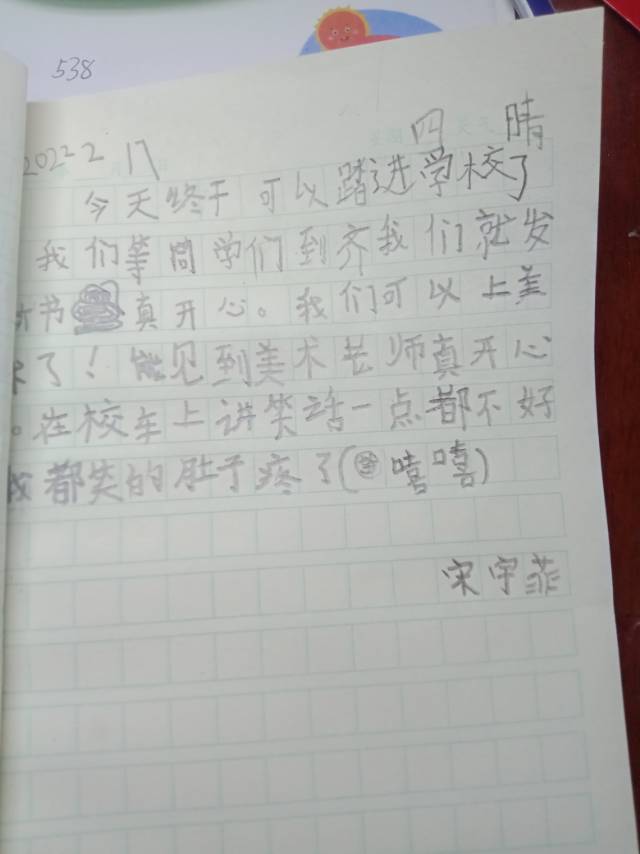 538
2022 2 17 四 晴
今天终于可以踏进学校了
我们等同学们到齐我们就发
书真开心。我们可以上美
了！能见到美术老师真开心
。在校车上讲笑话一点都不好
我都笑的肚子疼了(嘻嘻)
宋宇菲